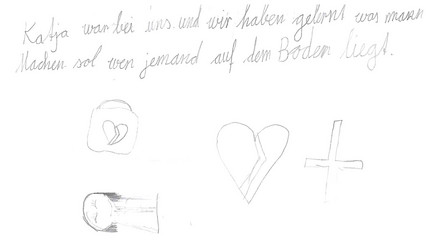 Katja war bei uns und wir haben gelernt was mann
Machen sol wen jemand auf dem Boden liegt.